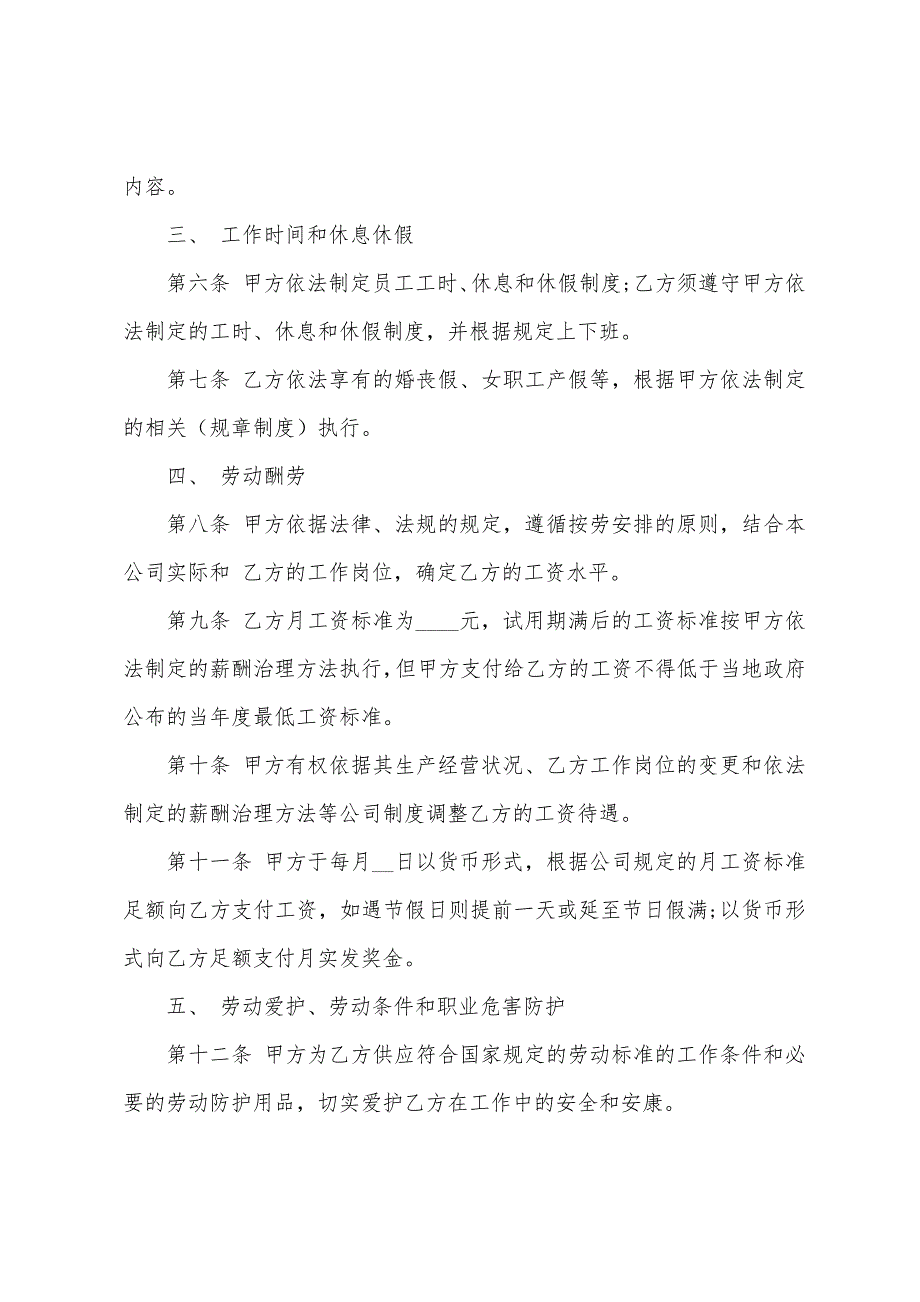 内容。
三、 工作时间和休息休假
第六条 甲方依法制定员工工时、休息和休假制度;乙方须遵守甲方依
法制定的工时、休息和休假制度，并根据规定上下班。
第七条 乙方依法享有的婚丧假、女职工产假等，根据甲方依法制定
的相关（规章制度）执行。
四、 劳动酬劳
第八条 甲方依据法律、法规的规定，遵循按劳安排的原则，结合本
公司实际和 乙方的工作岗位，确定乙方的工资水平。
第九条 乙方月工资标准为____元，试用期满后的工资标准按甲方依
法制定的薪酬治理方法执行,但甲方支付给乙方的工资不得低于当地政府
公布的当年度最低工资标准。
第十条 甲方有权依据其生产经营状况、乙方工作岗位的变更和依法
制定的薪酬治理方法等公司制度调整乙方的工资待遇。
第十一条 甲方于每月__日以货币形式，根据公司规定的月工资标准
足额向乙方支付工资，如遇节假日则提前一天或延至节日假满;以货币形
式向乙方足额支付月实发奖金。
五、 劳动爱护、劳动条件和职业危害防护
第十二条 甲方为乙方供应符合国家规定的劳动标准的工作条件和必
要的劳动防护用品，切实爱护乙方在工作中的安全和安康。